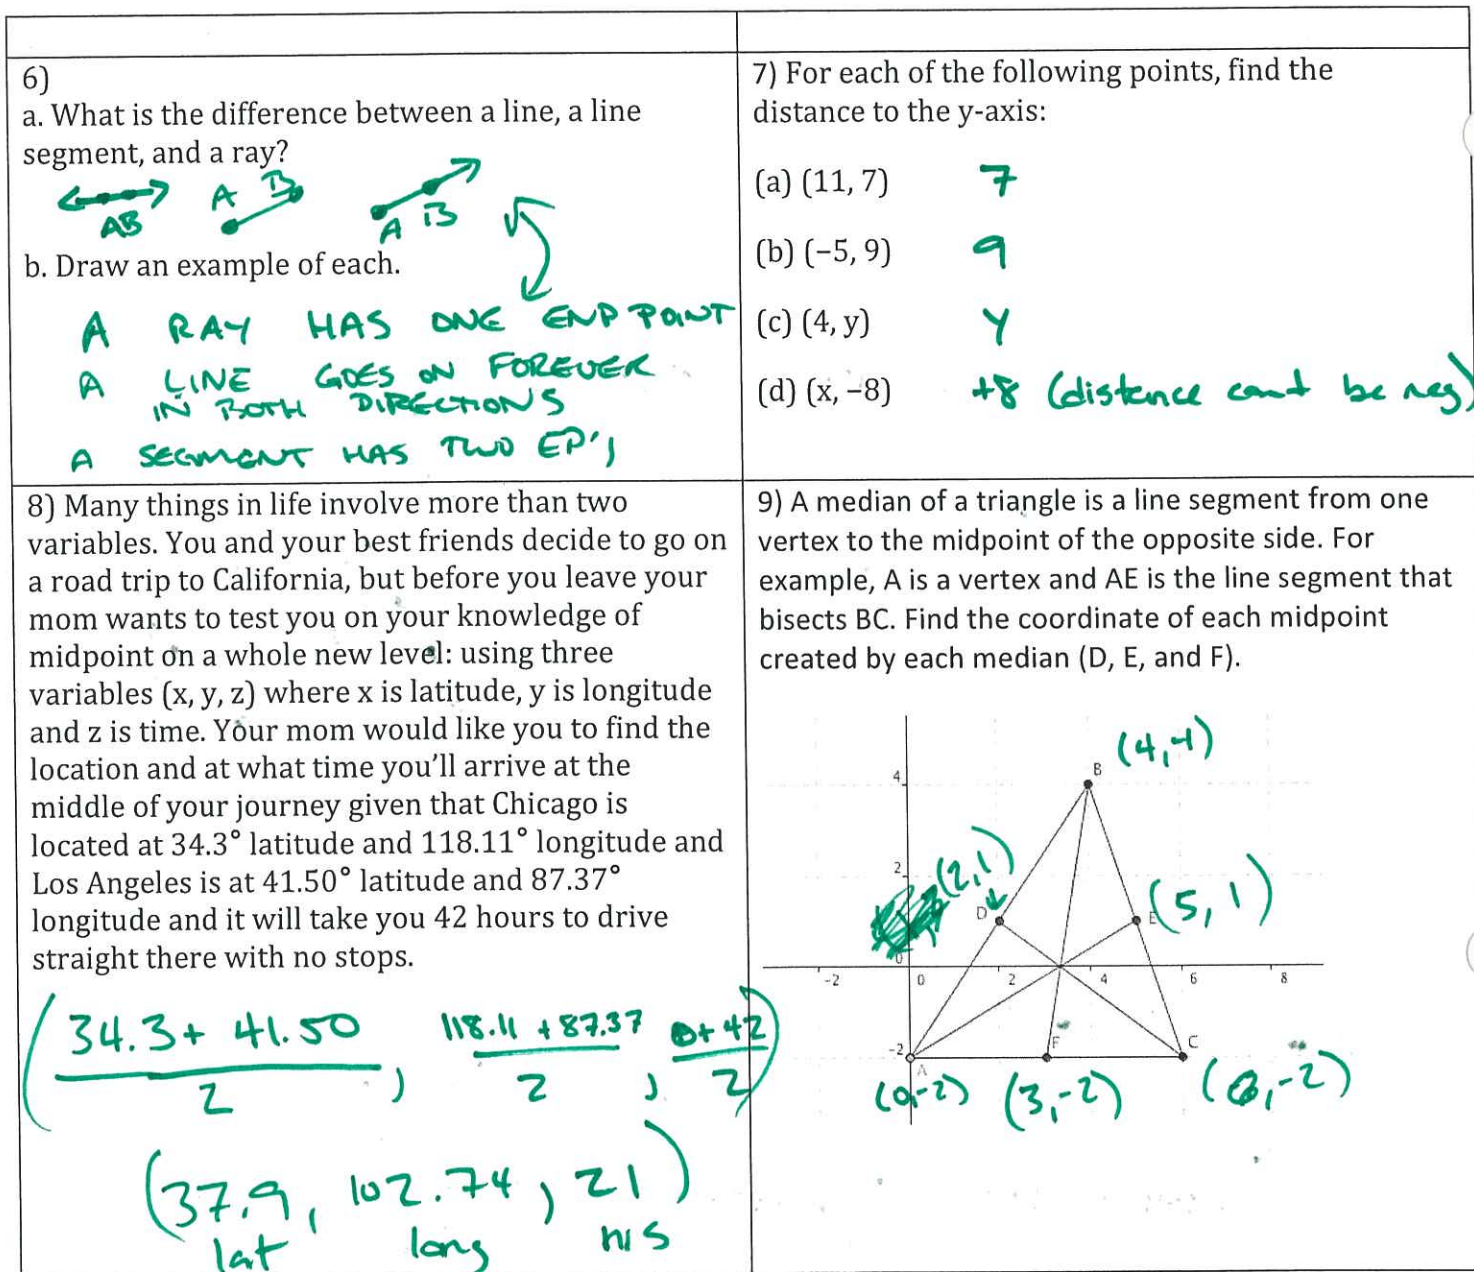 6)
a. What is the difference between a line, a line
segment, and a ray?
AB
A B
A B
b. Draw an example of each.
A RAY HAS ONE END POINT
A LINE GOES ON FOREVER
IN BOTH DIRECTIONS
A SEGMENT HAS TWO EP's
7) For each of the following points, find the
distance to the y-axis:
(a) (11, 7) 7
(b) (−5, 9) 9
(c) (4, y) y
(d) (x, −8) +8 (distance cant be neg)
8) Many things in life involve more than two
variables. You and your best friends decide to go on
a road trip to California, but before you leave your
mom wants to test you on your knowledge of
midpoint on a whole new level: using three
variables (x, y, z) where x is latitude, y is longitude
and z is time. Your mom would like you to find the
location and at what time you'll arrive at the
middle of your journey given that Chicago is
located at 34.3° latitude and 118.11° longitude and
Los Angeles is at 41.50° latitude and 87.37°
longitude and it will take you 42 hours to drive
straight there with no stops.
(34.3 + 41.50 118.11 + 87.37 0 + 42)
2 , 2 , 2
(37.9, 102.74, 21)
lat long hrs
9) A median of a triangle is a line segment from one
vertex to the midpoint of the opposite side. For
example, A is a vertex and AE is the line segment that
bisects BC. Find the coordinate of each midpoint
created by each median (D, E, and F).
B (4,-4)
4
2 (2,1)
D E (5, 1)
0
-2 0 2 4 6 8
-2 F C
A
(0,-2) (3,-2) (6,-2)